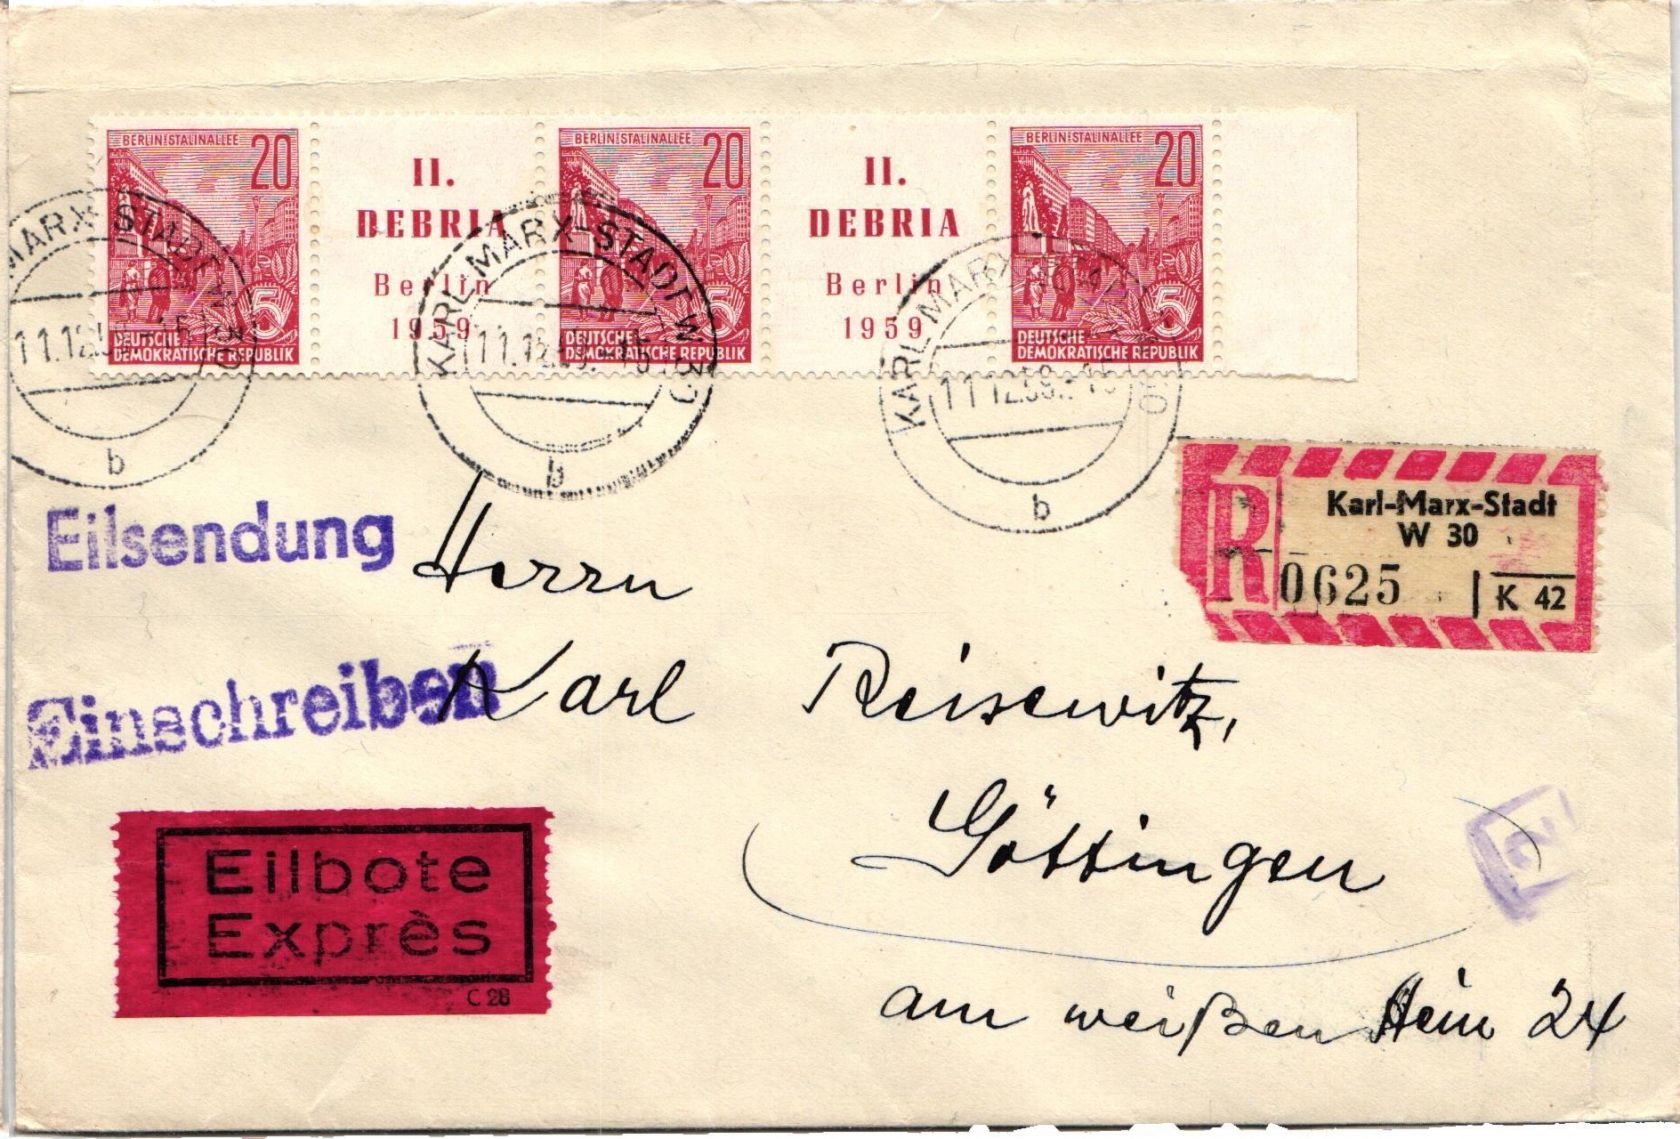 BERLIN-STALINALLEE 20
5
DEUTSCHE
DEMOKRATISCHE REPUBLIK
II.
DEBRIA
Berlin
1959
BERLIN-STALINALLEE 20
5
DEUTSCHE
DEMOKRATISCHE REPUBLIK
II.
DEBRIA
Berlin
1959
BERLIN-STALINALLEE 20
5
DEUTSCHE
DEMOKRATISCHE REPUBLIK
MARX-STADT W 30
11.12.59.-15
b
KARL-MARX-STADT W 30
11.12.59.-15
b
KARL-MARX-STADT W 30
11.12.59.-15
b
R
Karl-Marx-Stadt
W 30
0625
K 42
Eilsendung
Einschreiben
Herrn
Karl Reisewitz,
Göttingen
am weißen Stein 24
Eilbote
Exprès
C 28